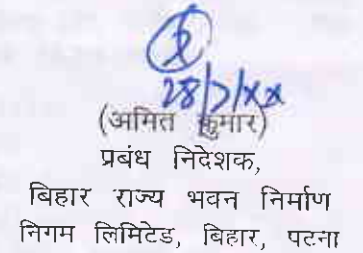 28/7/xx
(अमित कुमार)
प्रबंध निदेशक,
बिहार राज्य भवन निर्माण
निगम लिमिटेड, बिहार, पटना